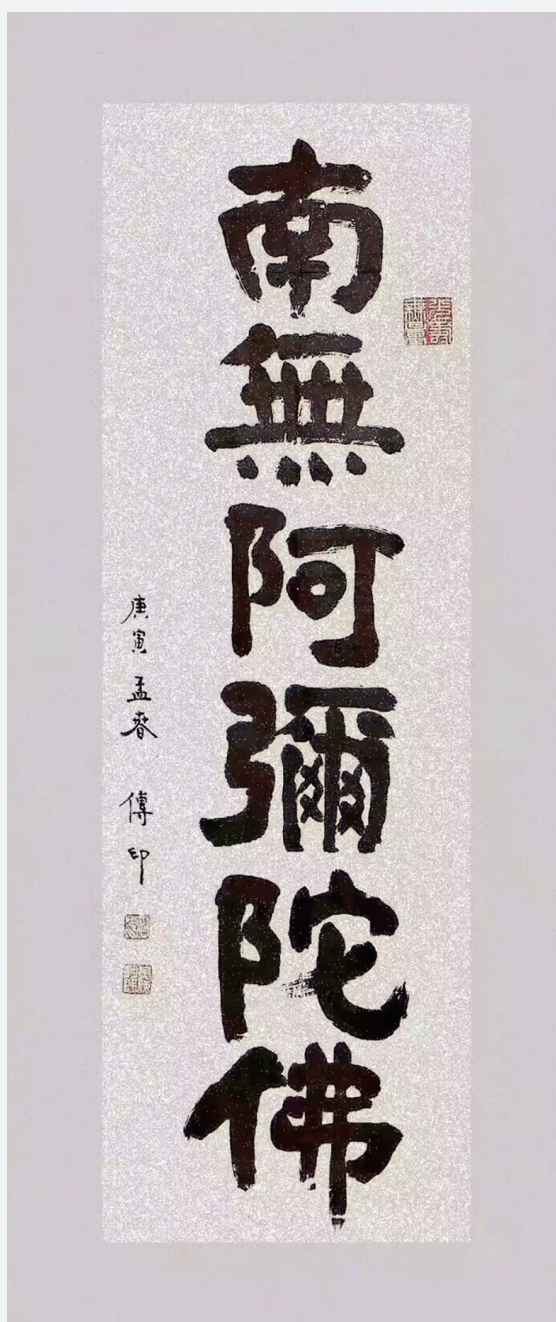 南無阿彌陀佛
庚寅孟春 傳印